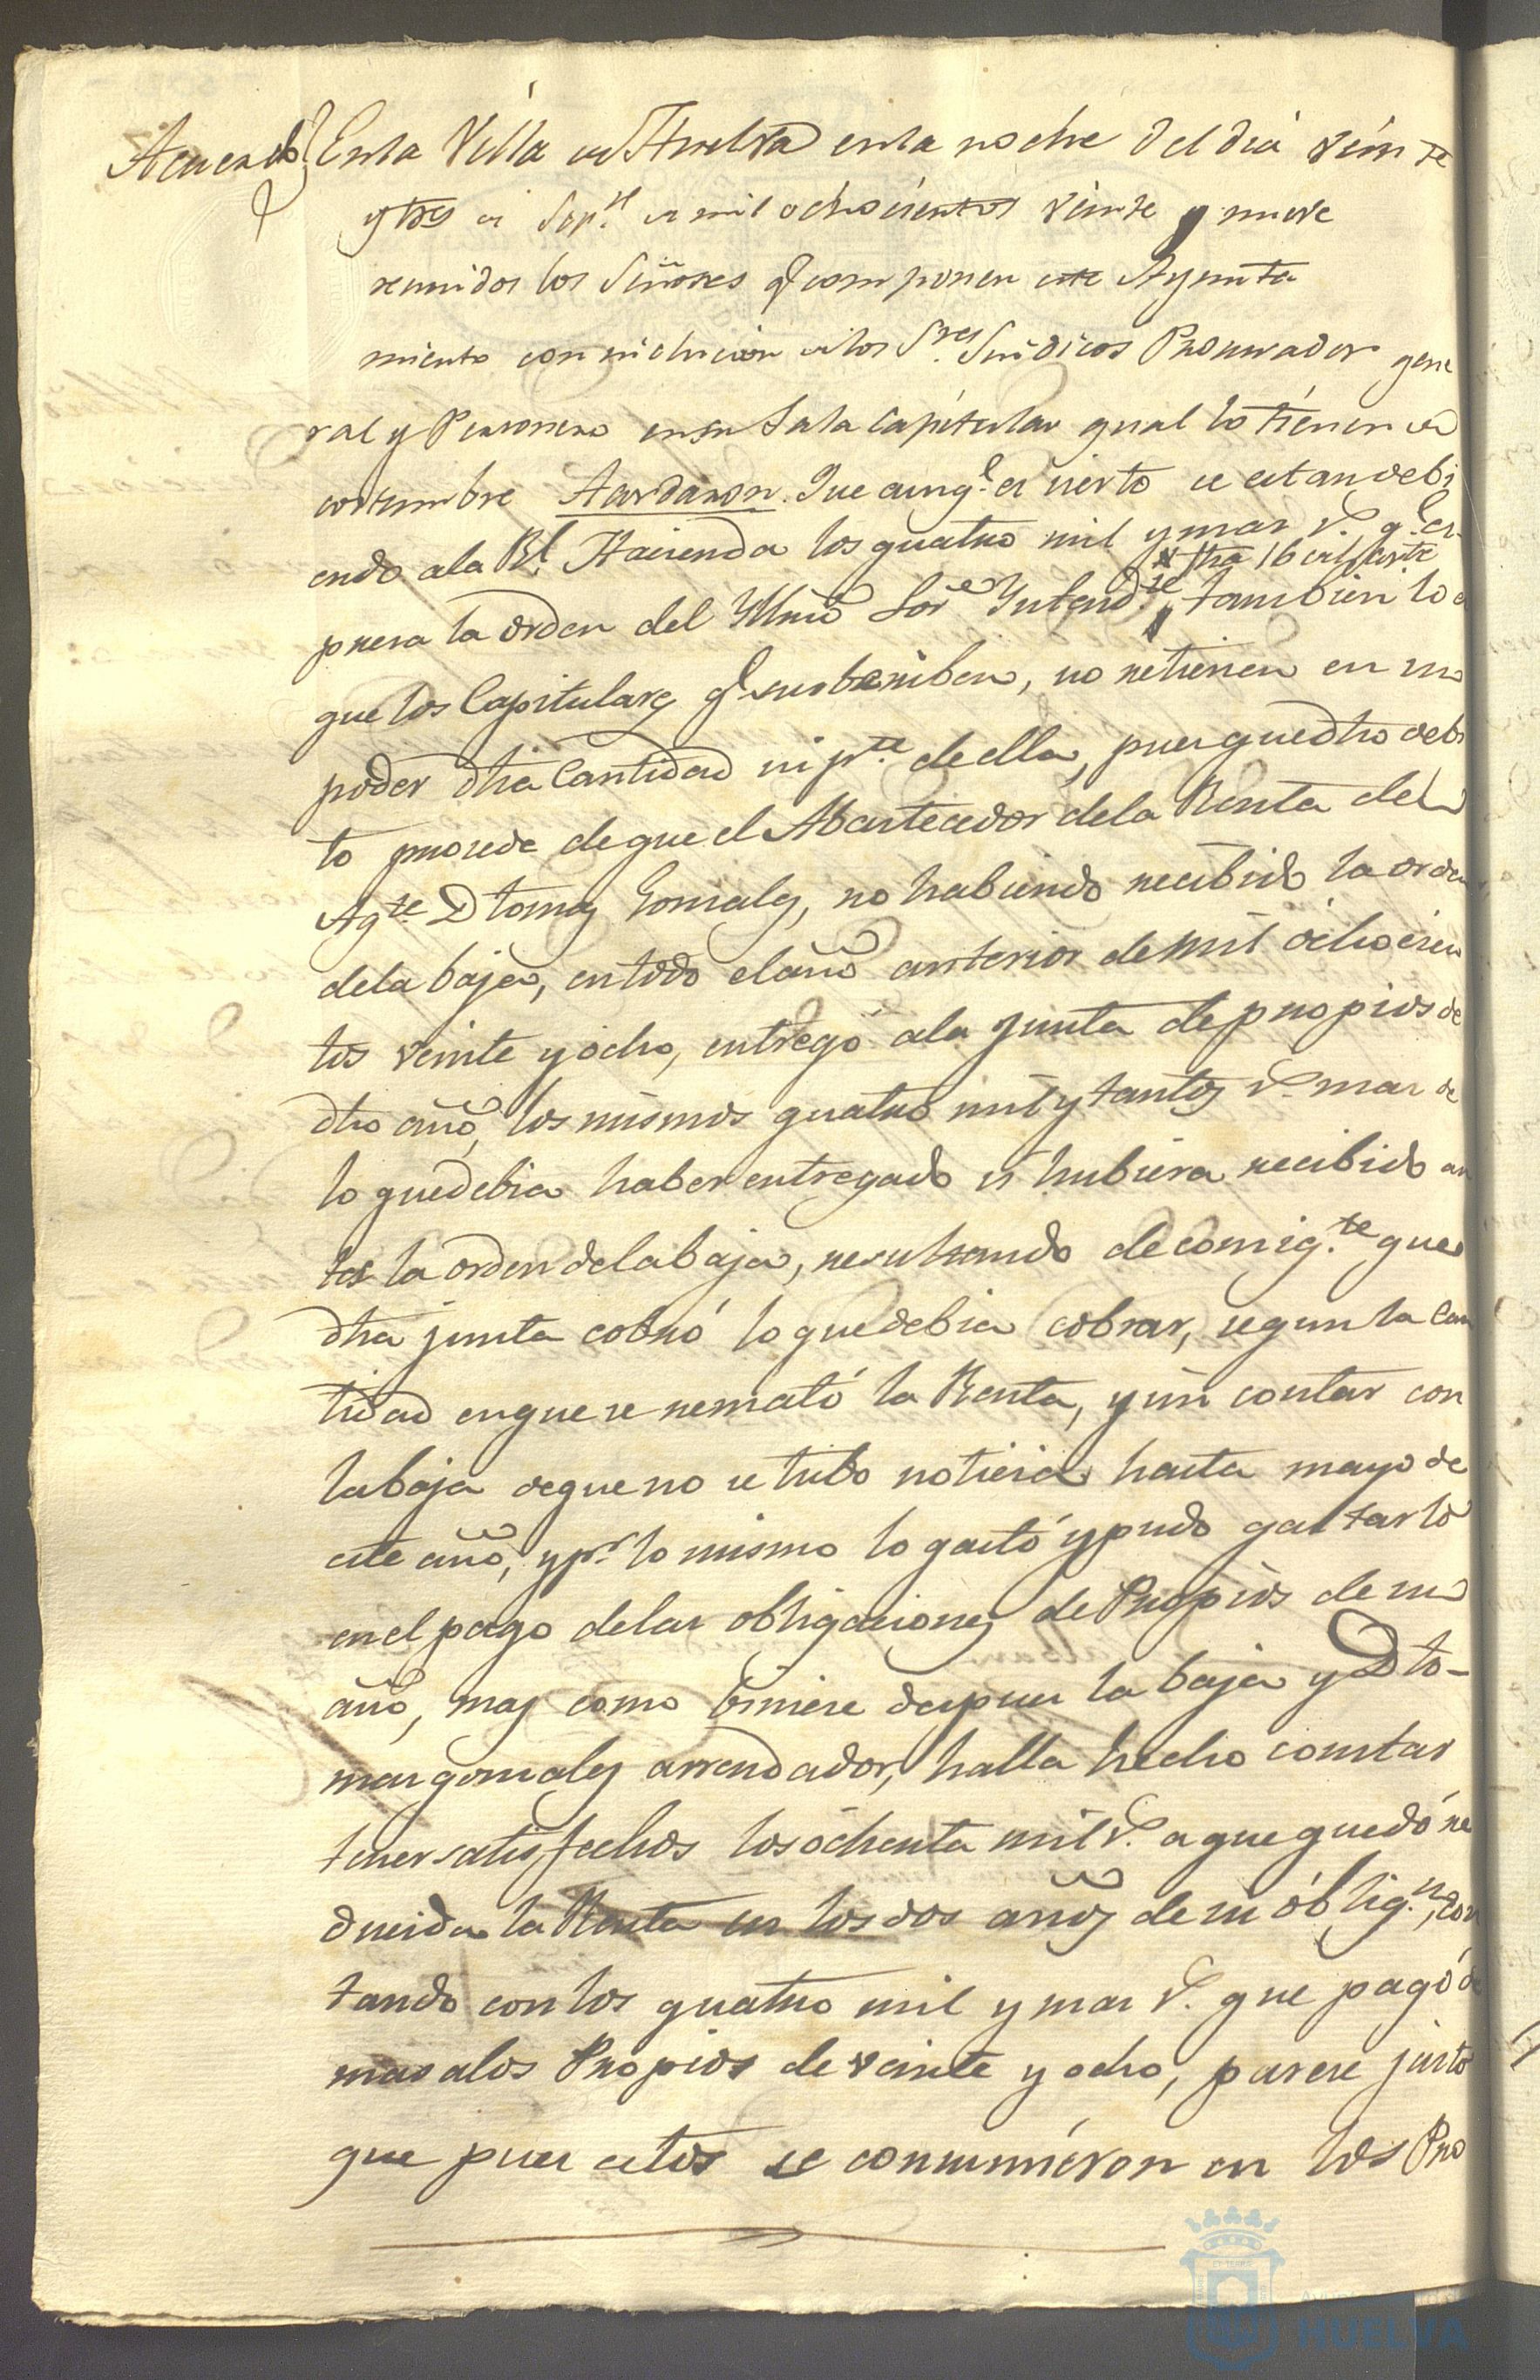 Acuerdo } En la Villa de Huelva en la noche del dia vein te
y tres de Sep.e de mil ochocientos veinte y nueve
reunidos los Señores q.e componen este Ayunta
miento con inclucion de los S.res Sindicos Procurador gene
ral y Personero en su Sala Capitular qual lo tienen de
costumbre Acordaron. Que aunq.e es cierto se estan debi
endo a la R.l Hacienda los quatro mil y mas r.s q.e es
fha 16 del corr.te
presa la orden del Yllmô Sor Intend.te, tambien lo es
que los Capitulares q.e subscriben, no retienen en su
poder dha Cantidad ni p.te de ella, pues que dho debi
to procede de que el Abastecedor de la Renta del
Ag.te D Tomas Gonzales, no habiendo recibido la orden
de la baja, en todo el año anterior de mil ochocien
tos veinte y ocho, entregó a la Junta de propios de
dho año, los mismos quatro mil y tantos r.s mas de
lo que debia haber entregado si hubiera recibido an
tes la orden de la baja, resultando de consig.te que
dha junta cobró lo que debia cobrar, segun la Can
tidad en que se remató la Renta, y sin contar con
la baja de que no se tubo noticia hasta mayo de
este año, y p.r lo mismo lo gastó y pudo gastarlo
en el pago de las obligaciones de Propios de su
año, mas como biniese despues la baja y D To-
mas gonzales arrendador, halla hecho constar
tener satisfechos los ochenta mil r.s a que quedó re
ducida la Renta en los dos años de su oblig.n, con
tando con los quatro mil y mas r.s que pagó de
mas a los Propios de veinte y ocho, parece justo
que pues estos se consumieron en los Pro
HUELVA